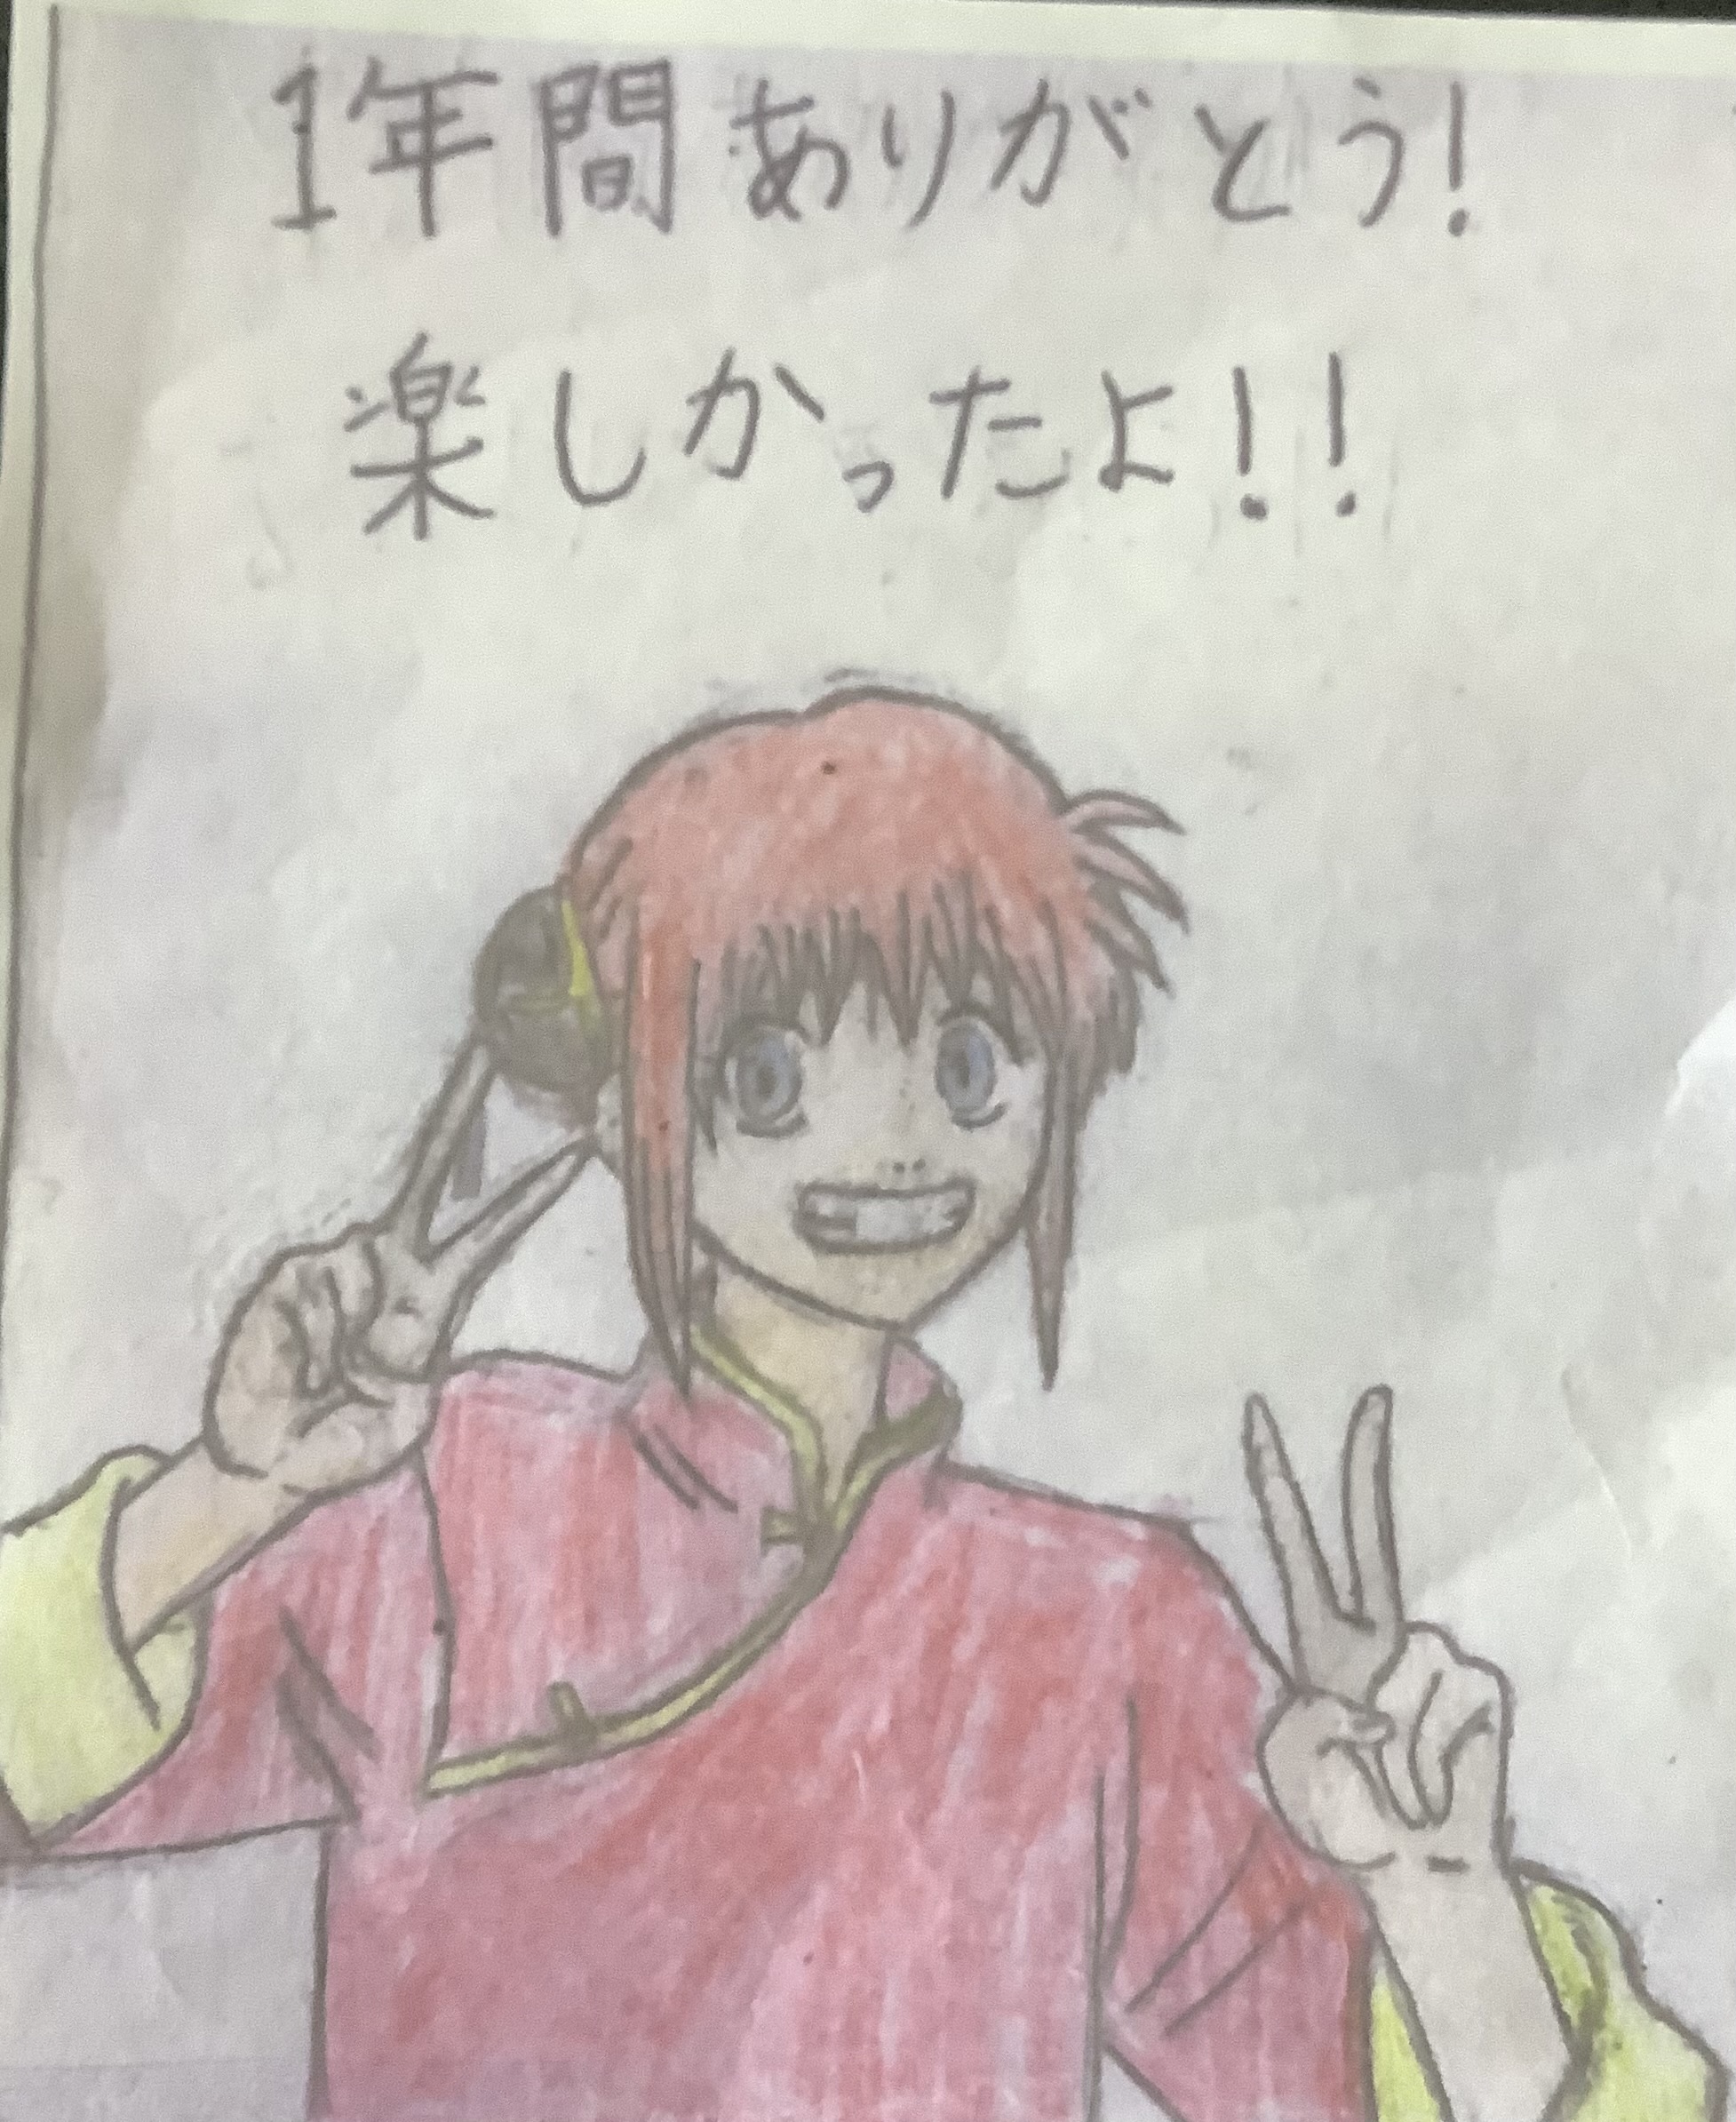 1年間ありがとう!
楽しかったよ!!